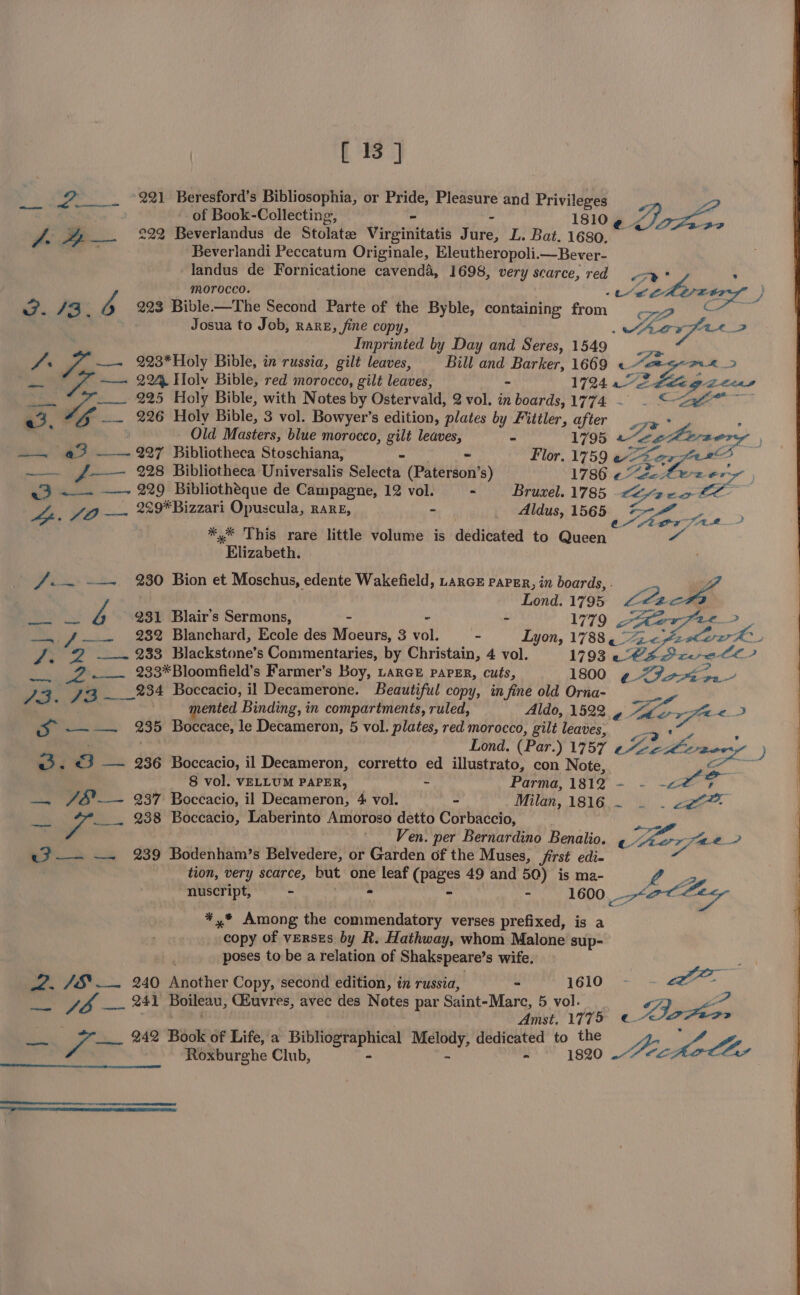 [ 13 ]
2 221 Beresford's Bibliosophia, or Pride, Pleasure and Privileges
of Book-Collecting, - - 1810
222 Beverlandus de Stolatæ Virginitatis Jure, L. Bat. 1680,
Beverlandi Peccatum Originale, Eleutheropoli.—Bever-
landus de Fornicatione cavendâ, 1698, very scarce, red
morocco.
3. 13. 6 223 Bible.—The Second Parte of the Byble, containing from
Josua to Job, RARE, fine copy,
Imprinted by Day and Seres, 1549 Thorpe
1. 7 — 223*Holy Bible, in russia, gilt leaves, Bill and Barker, 1669
7 — 224 Holy Bible, red morocco, gilt leaves, - 1724
7 — 225 Holy Bible, with Notes by Ostervald, 2 vol. in boards, 1774 - -
3. 226 Holy Bible, 3 vol. Bowyer's edition, plates by Fittler, after
Old Masters, blue morocco, gilt leaves, - 1795
— 3 — 227 Bibliotheca Stoschiana, - - Flor. 1759 Thorpe
— 1 — 228 Bibliotheca Universalis Selecta (Paterson's) 1786
3 — — 229 Bibliothèque de Campagne, 12 vol. - Bruxel. 1785
4. 10 — 229*Bizzari Opuscula, RARE, - Aldus, 1565
Thorpe
*** This rare little volume is dedicated to Queen
Elizabeth.
1. — — 230 Bion et Moschus, edente Wakefield, LARGE PAPER, in boards,
Lond. 1795
— — 6 231 Blair's Sermons, - - - 1779 Thorpe
— 1 — 232 Blanchard, Ecole des Moeurs, 3 vol. - Lyon, 1788
1. 2 — 233 Blackstone's Commentaries, by Christian, 4 vol. 1793
— 2 — 233*Bloomfield's Farmer's Boy, LARGE PAPER, cuts, 1800
13. 13 — 234 Boccacio, il Decamerone. Beautiful copy, in fine old Orna-
mented Binding, in compartments, ruled, Aldo, 1522 Thorpe
5 — — 235 Boccace, le Decameron, 5 vol. plates, red morocco, gilt leaves,
Lond. (Par.) 1757
3. 3 — 236 Boccacio, il Decameron, corretto ed illustrato, con Note,
8 vol. VELLUM PAPER, - Parma, 1812 - -
— 18 — 237 Boccacio, il Decameron, 4 vol. - Milan, 1816 - -
— 7 — 238 Boccacio, Laberinto Amoroso detto Corbaccio,
Ven. per Bernardino Benalio. Thorpe
3 — — 239 Bodenham's Belvedere, or Garden of the Muses, first edi-
tion, very scarce, but one leaf (pages 49 and 50) is ma-
nuscript, - - - - 1600
*** Among the commendatory verses prefixed, is a
copy of VERSES by R. Hathway, whom Malone sup-
poses to be a relation of Shakspeare's wife.
2. 18 — 240 Another Copy, second edition, in russia, - 1610 - -
— 16 — 241 Boileau, Œuvres, avec des Notes par Saint-Marc, 5 vol.
Amst. 1775
— 7 — 242 Book of Life, a Bibliographical Melody, dedicated to the
Roxburghe Club, - - - 1820